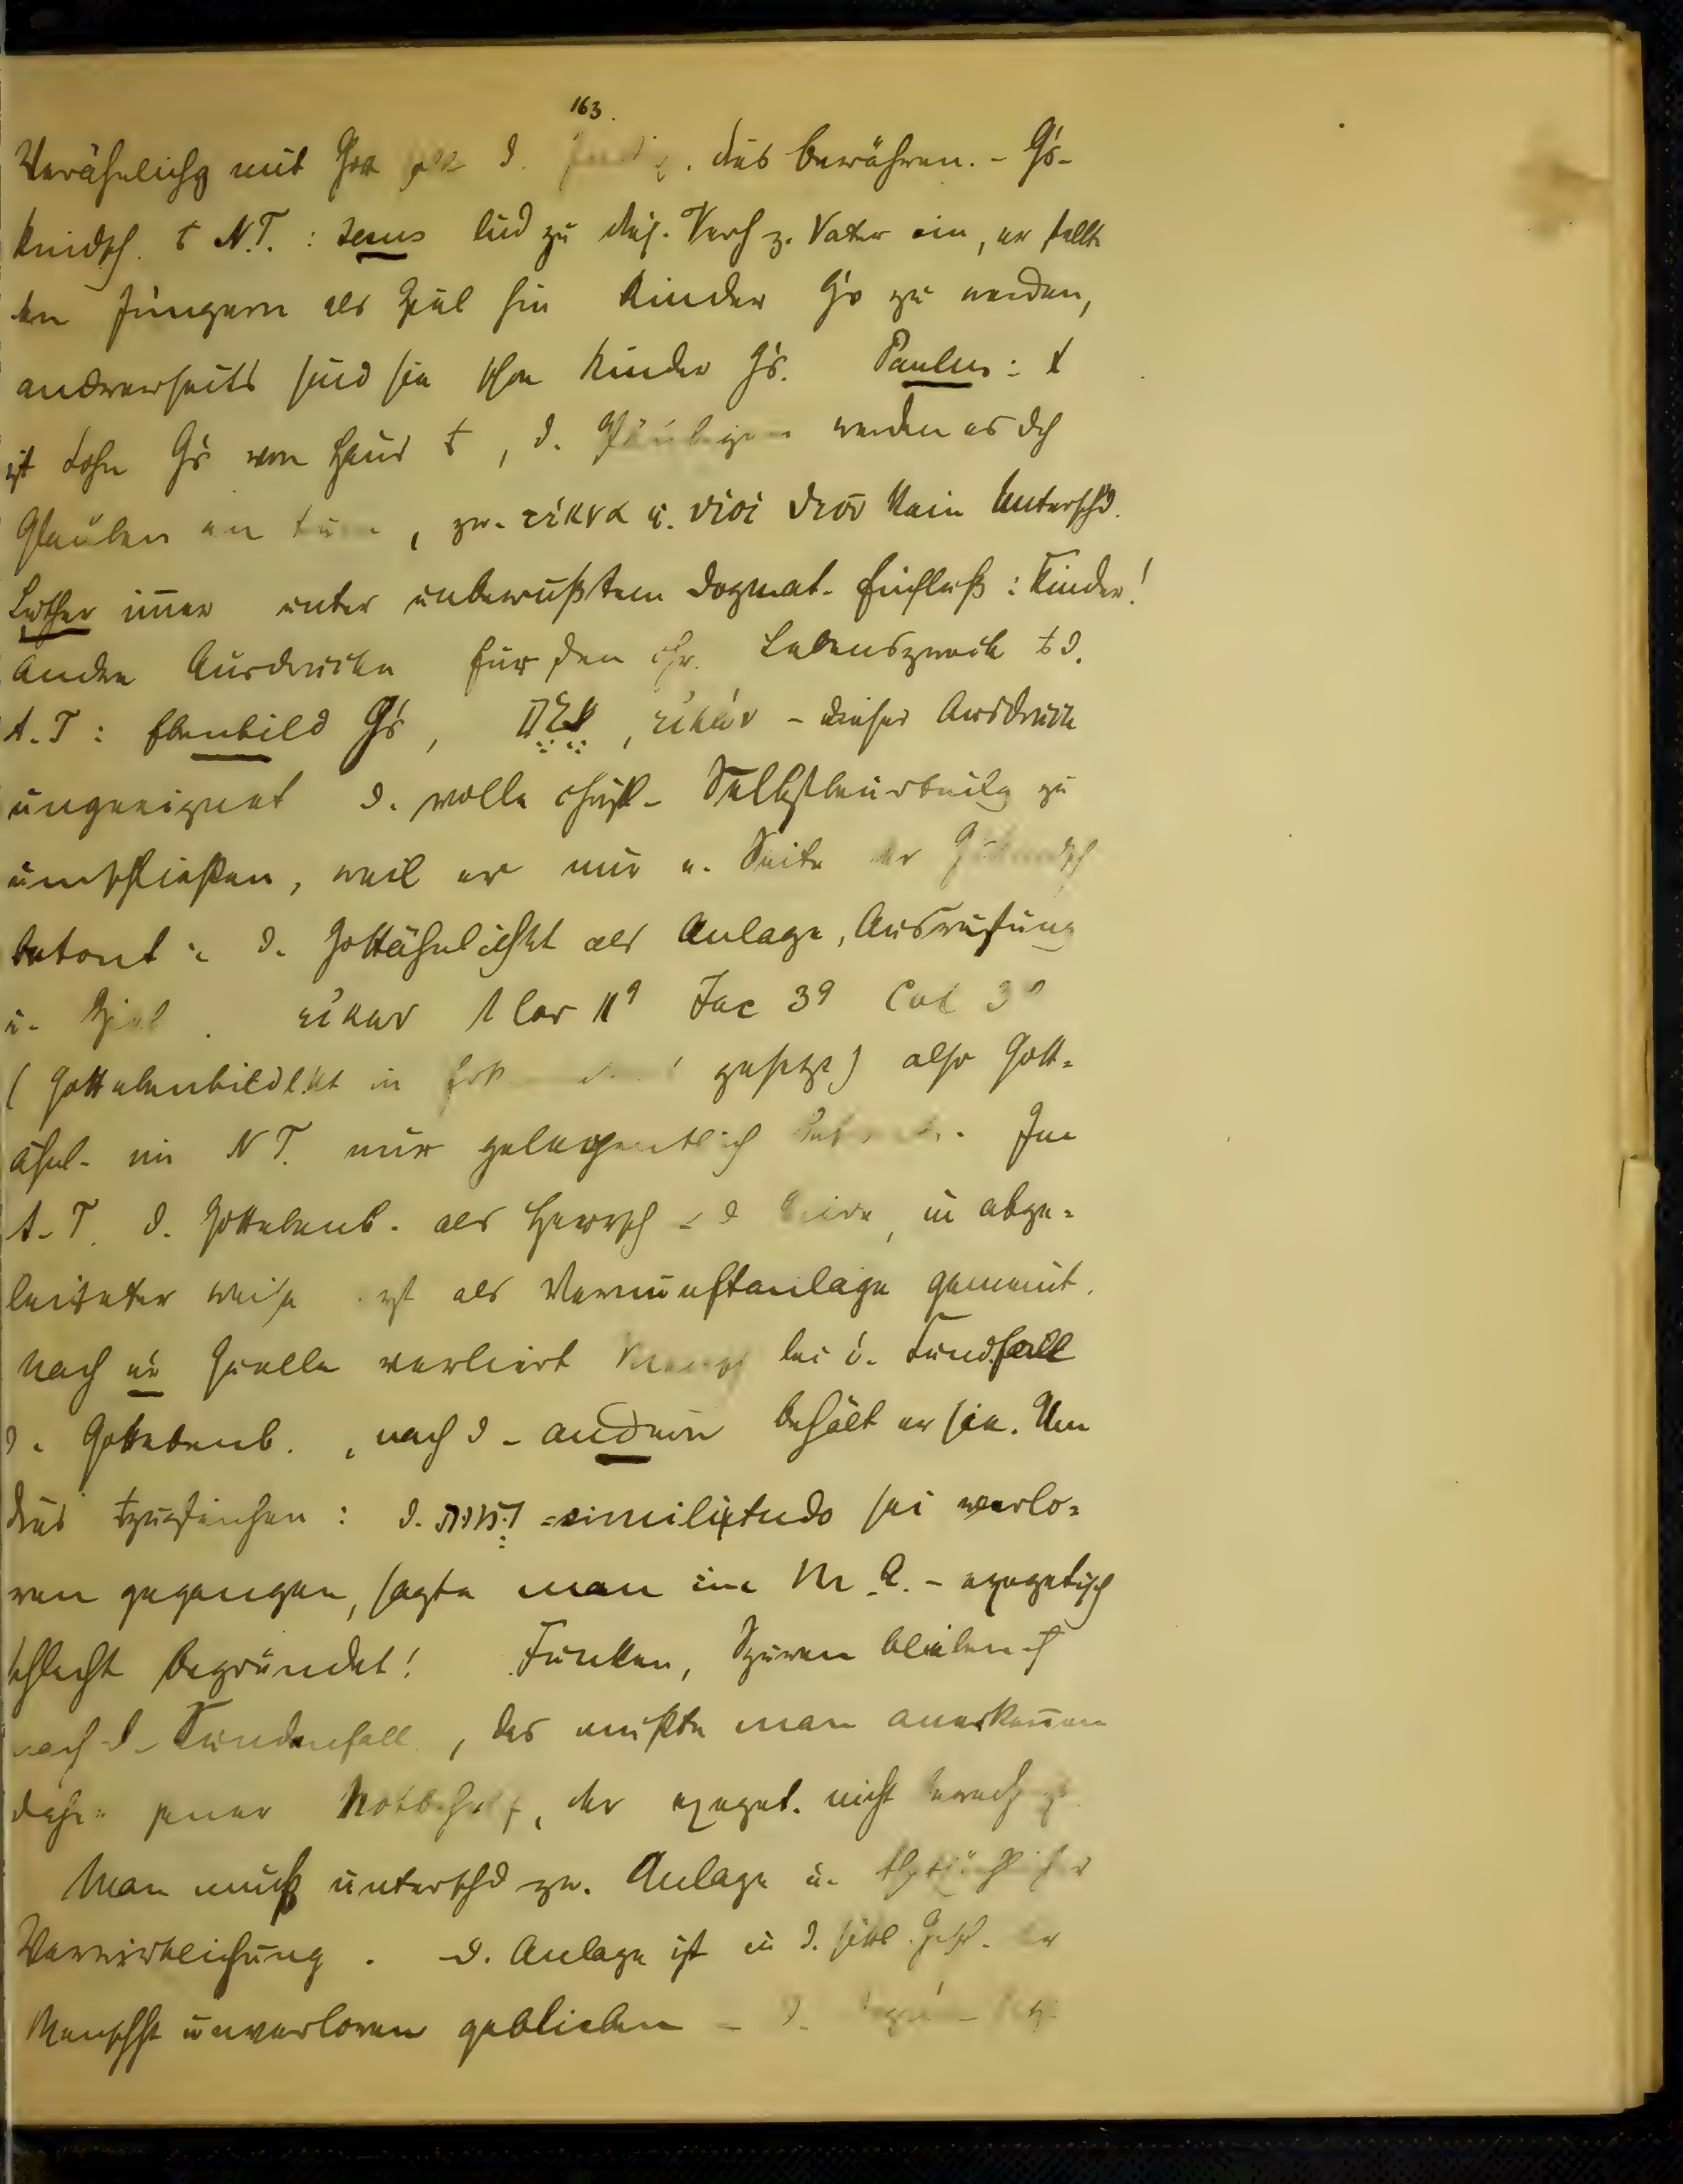 163.
Verähnlichg mit Gott d. dies bewähren. – G's-
kindsch. t N.T. : Jesus lud zu dies. Verh z. Vater ein, er stellte
den Jüngern als Ziel hin Kinder G's zu werden,
andrerseits sind sie schon Kinder G's. Paulus : X
ist Sohn G's von Haus t, d. Gläubigen werden es dch
Glauben an , zw. τέκνα u. υἱοὶ θεοῦ kein Untersch'd.
Luther im̄er unter unbewußtem dogmat. Einfluß : Kinder!
Andre Ausdrücke für den chr. Lebenszweck t d.
A.T : Ebenbild G's, צֶלֶם, εἰκών – dieser Ausdruck
ungeeignet d. volle christl. Selbstbeurteilg zu
umschließen, weil er nur e. Seite der
betont : d. Gottähnlichkt als Anlage, Ausrüstung
u. Ziel. εἰκων 1 Cor 11⁹ Jac 3⁹ Col 3
(Gottebenbildlkt in gesetzt) also Gott-
ähnl. im N T. nur gelegentlich . Im
A.T. d. Gottebenb. als Herrsch d , in abge-
leiteter Weise ist als Vernunftanlage gemeint.
Nach einer Quelle verliert Mensch bei d. Sündfall
d. Gottebenb., nach d. andern behält er sie. Um
dies : d. דְּמוּת = similitudo sei verlo-
ren gegangen, sagte man im M. A. – exegetisch
schlecht begründet! Funken, Spuren blieben
nach d. Sündenfall, das mußte man anerkennen
daher jener Notbehelf, der exeget. nicht
Man muß untersch'd zw. Anlage u. thatsächlicher
Verwirklichung. – D. Anlage ist in d. sittl. Gesch. der
Menschht unverloren geblieben – d.